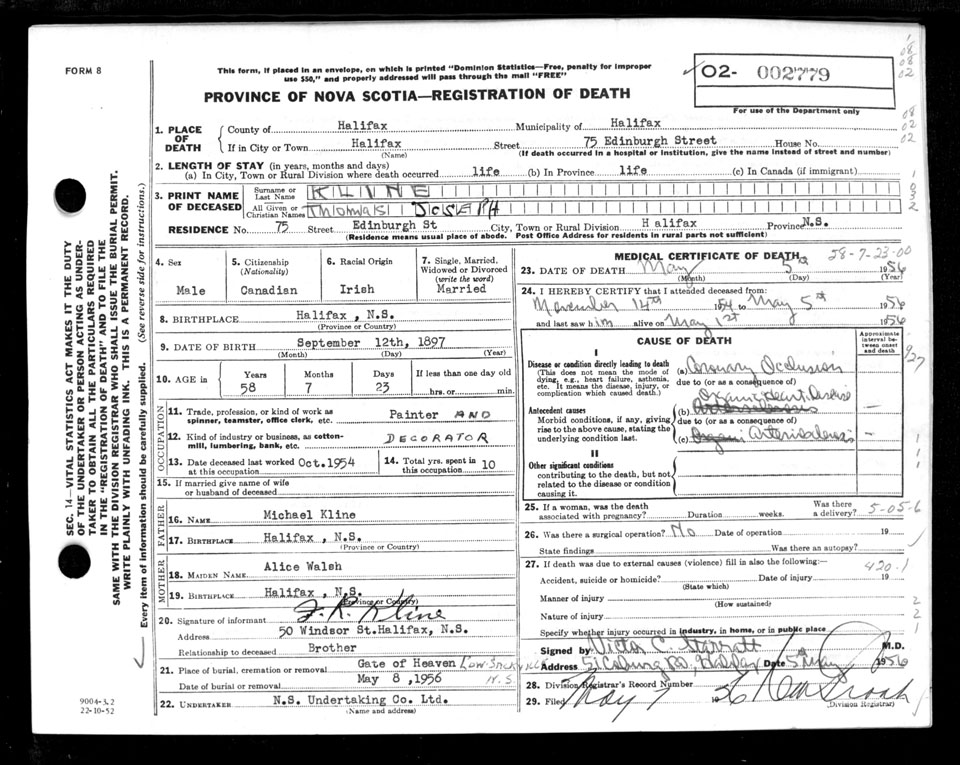 FORM 8
This form, if placed in an envelope, on which is printed "Dominion Statistics—Free, penalty for improper
use $50," and properly addressed will pass through the mail "FREE"
02- 002779
For use of the Department only
PROVINCE OF NOVA SCOTIA—REGISTRATION OF DEATH
1. PLACE OF DEATH
County of Halifax Municipality of Halifax
If in City or Town Halifax Street 75 Edinburgh Street House No.
(Name) (If death occurred in a hospital or institution, give the name instead of street and number)
2. LENGTH OF STAY (in years, months and days)
(a) In City, Town or Rural Division where death occurred life (b) In Province life (c) In Canada (if immigrant)
3. PRINT NAME OF DECEASED
Surname or Last Name KLINE
All Given or Christian Names THOMAS JOSEPH
RESIDENCE No. 75 Street Edinburgh St City, Town or Rural Division Halifax Province N.S.
(Residence means usual place of abode. Post Office Address for residents in rural parts not sufficient)
4. Sex
Male
5. Citizenship (Nationality)
Canadian
6. Racial Origin
Irish
7. Single, Married, Widowed or Divorced (write the word)
Married
8. BIRTHPLACE Halifax, N.S.
(Province or Country)
9. DATE OF BIRTH September 12th, 1897
(Month) (Day) (Year)
10. AGE in Years Months Days If less than one day old
58 7 23 hrs. or min.
OCCUPATION
11. Trade, profession, or kind of work as spinner, teamster, office clerk, etc. Painter AND
12. Kind of industry or business, as cotton-mill, lumbering, bank, etc. DECORATOR
13. Date deceased last worked at this occupation Oct. 1954
14. Total yrs. spent in this occupation 10
15. If married give name of wife or husband of deceased
FATHER
16. NAME Michael Kline
17. BIRTHPLACE Halifax, N.S.
(Province or Country)
MOTHER
18. MAIDEN NAME Alice Walsh
19. BIRTHPLACE Halifax, N.S.
(Province or Country)
20. Signature of informant F. R. Kline
Address 50 Windsor St. Halifax, N.S.
Relationship to deceased Brother
21. Place of burial, cremation or removal Gate of Heaven Low. Sackville
Date of burial or removal May 8, 1956 N.S.
22. UNDERTAKER N.S. Undertaking Co. Ltd.
(Name and address)
MEDICAL CERTIFICATE OF DEATH
58-7-23-00
23. DATE OF DEATH May 5th 1956
(Month) (Day) (Year)
24. I HEREBY CERTIFY that I attended deceased from:
November 14th 1954 to May 5th 1956
and last saw him alive on May 1st 1956
CAUSE OF DEATH
Approximate interval between onset and death
I
Disease or condition directly leading to death
(This does not mean the mode of dying, e.g., heart failure, asthenia, etc. It means the disease, injury, or complication which caused death.)
(a) Coronary Occlusion
due to (or as a consequence of)
Antecedent causes
Morbid conditions, if any, giving rise to the above cause, stating the underlying condition last.
Organic Heart Disease
(b)
due to (or as a consequence of)
(c) Arteriosclerosis
II
Other significant conditions
contributing to the death, but not related to the disease or condition causing it.
25. If a woman, was the death associated with pregnancy? Duration weeks. Was there a delivery?
5-05-6
26. Was there a surgical operation? No Date of operation 19
State findings Was there an autopsy?
27. If death was due to external causes (violence) fill in also the following:
420.1
Accident, suicide or homicide? Date of injury 19
(State which)
Manner of injury
(How sustained)
Nature of injury
Specify whether injury occurred in industry, in home, or in public place
Signed by Victor C. M.D.
Address 51 Coburg Rd, Halifax Date 5th May 1956
28. Division Registrar's Record Number
29. Filed May 7 1956
(Division Registrar)
SEC. 14—VITAL STATISTICS ACT MAKES IT THE DUTY
OF THE UNDERTAKER OR PERSON ACTING AS UNDER-
TAKER TO OBTAIN ALL THE PARTICULARS REQUIRED
IN THE "REGISTRATION OF DEATH" AND TO FILE THE
SAME WITH THE DIVISION REGISTRAR WHO SHALL ISSUE THE BURIAL PERMIT.
WRITE PLAINLY WITH UNFADING INK. THIS IS A PERMANENT RECORD.
Every item of information should be carefully supplied. (See reverse side for instructions.)
9004-3.2
22-10-52